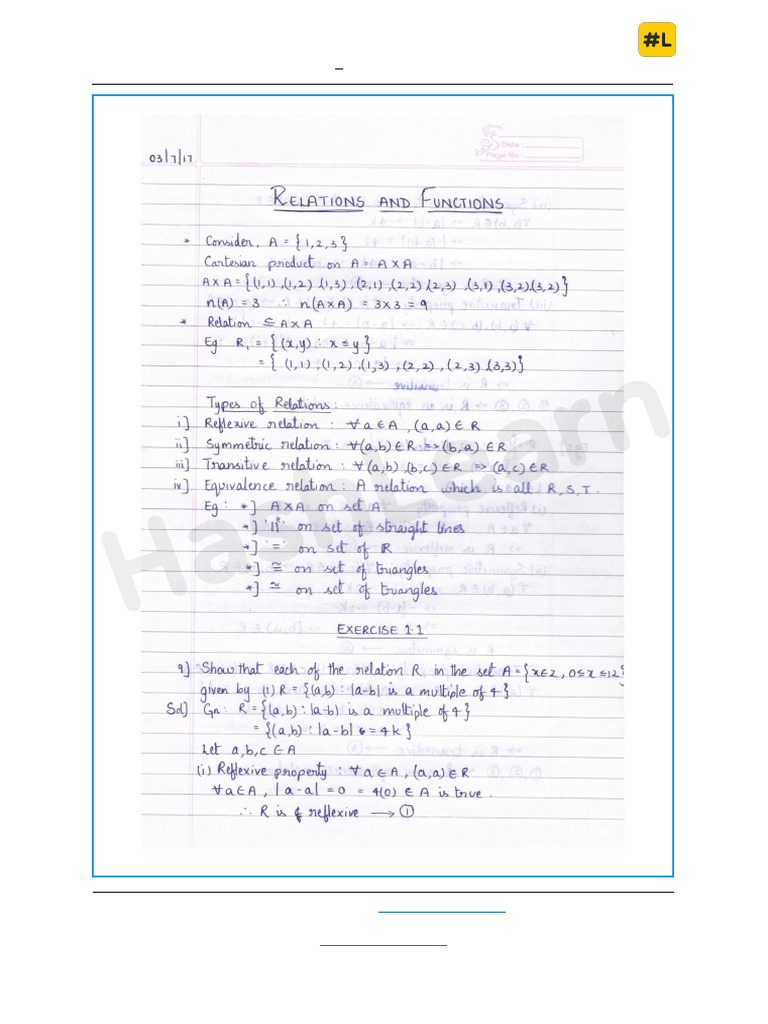 #L
03/7/17
Date :
Page No :
RELATIONS AND FUNCTIONS
* Consider, A = {1,2,3}
Cartesian product on A = A×A
A×A = {(1,1),(1,2),(1,3),(2,1),(2,2),(2,3),(3,1),(3,2)(3,2)}
n(A) = 3 ∴ n(A×A) = 3×3 = 9
* Relation ⊆ A×A
Eg: R₁ = {(x,y) : x ≤ y}
= {(1,1),(1,2),(1,3),(2,2),(2,3),(3,3)}
Types of Relations:
i] Reflexive relation : ∀ a ∈ A, (a,a) ∈ R
ii] Symmetric relation : ∀(a,b) ∈ R ⇒ (b,a) ∈ R
iii] Transitive relation : ∀ (a,b),(b,c) ∈ R ⇒ (a,c) ∈ R
iv] Equivalence relation : A relation which is all R,S,T.
Eg: *] A×A on set A
*] '||' on set of straight lines
*] '=' on set of R
*] ≅ on set of triangles
*] ≃ on set of triangles
EXERCISE 1.1
9] Show that each of the relation R in the set A = {x∈Z, 0≤x≤12}
given by (i) R = {(a,b) : |a-b| is a multiple of 4}
Sol] Gn: R = {(a,b) : |a-b| is a multiple of 4}
= {(a,b) : |a-b| = 4k}
Let a,b,c ∈ A
(i) Reflexive property : ∀ a ∈ A, (a,a) ∈ R
∀ a ∈ A, |a-a| = 0 = 4(0) ∈ A is true.
∴ R is reflexive → ①
HashLearn